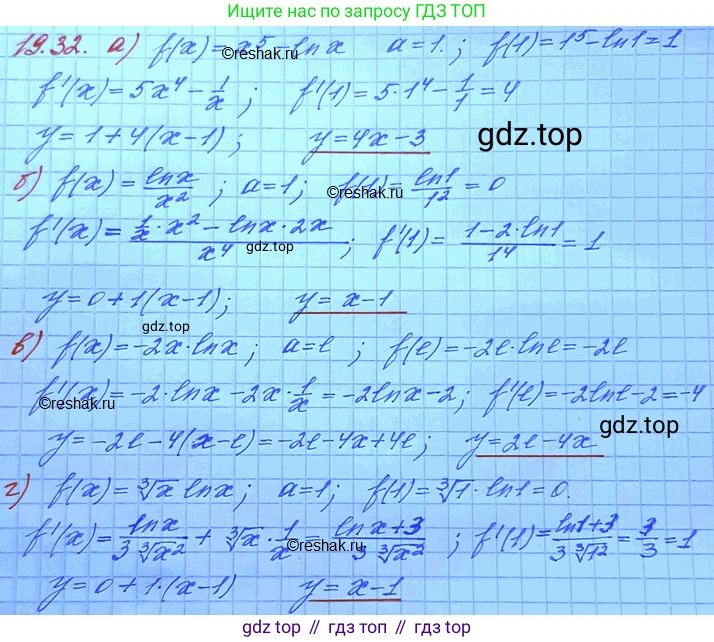 Ищите нас по запросу ГДЗ ТОП
19.32. а) f(x) = x⁵ - ln x   a = 1. ; f(1) = 1⁵ - ln 1 = 1
©reshak.ru
f'(x) = 5x⁴ - 1/x ; f'(1) = 5·1⁴ - 1/1 = 4
y = 1 + 4(x - 1) ; y = 4x - 3
gdz.top
б) f(x) = ln x / x² ; a = 1 ; f(1) = ln 1 / 1² = 0
©reshak.ru
f'(x) = (1/x · x² - ln x · 2x) / x⁴ ; f'(1) = (1 - 2·ln 1) / 1⁴ = 1
gdz.top
y = 0 + 1(x - 1) ; y = x - 1
gdz.top
в) f(x) = -2x·ln x ; a = e ; f(e) = -2e·ln e = -2e
f'(x) = -2·ln x - 2x·1/x = -2ln x - 2 ; f'(e) = -2ln e - 2 = -4
©reshak.ru
gdz.top
y = -2e - 4(x - e) = -2e - 4x + 4e ; y = 2e - 4x
г) f(x) = ∛x ln x ; a = 1 ; f(1) = ∛1 · ln 1 = 0.
f'(x) = ln x / 3∛x² + ∛x · 1/x = (ln x + 3) / 3∛x² ; f'(1) = (ln 1 + 3) / 3∛1² = 3/3 = 1
©reshak.ru
y = 0 + 1·(x - 1)   y = x - 1
gdz.top // гдз.топ // гдз.top